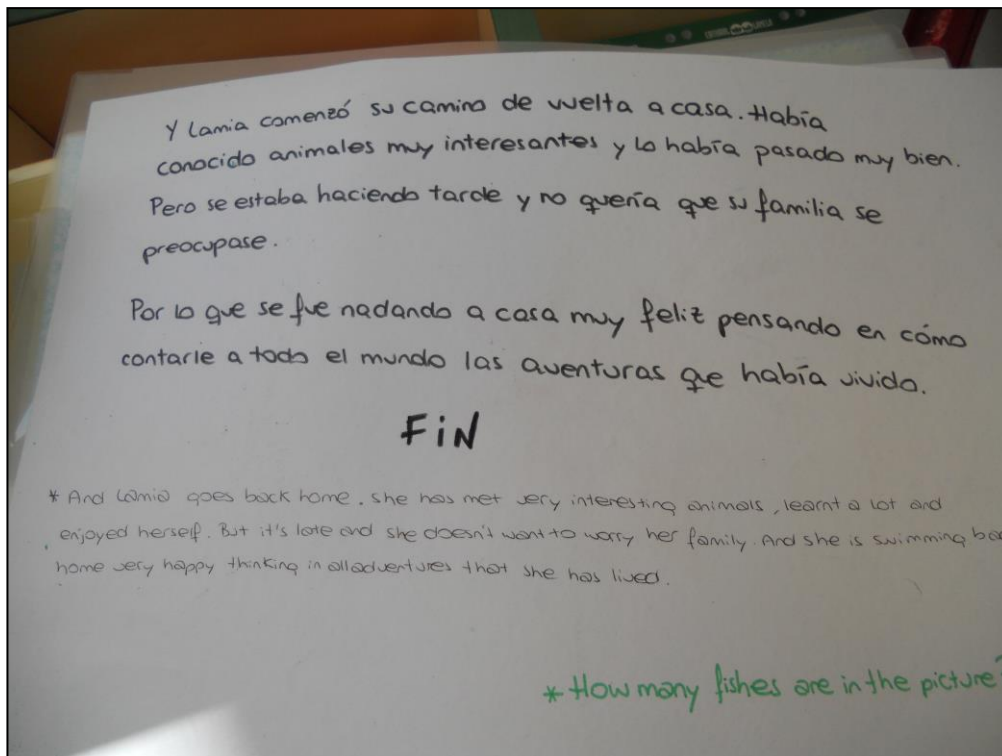 Y Lamia comenzó su camino de vuelta a casa. Había
conocido animales muy interesantes y lo había pasado muy bien.
Pero se estaba haciendo tarde y no quería que su familia se
preocupase.
Por lo que se fue nadando a casa muy feliz pensando en cómo
contarle a todo el mundo las aventuras que había vivido.
FiN
* And Lamia goes back home. She has met very interesting animals, learnt a lot and
enjoyed herself. But it's late and she doesn't want to worry her family. And she is swimming
home very happy thinking in all adventures that she has lived.
* How many fishes are in the picture?